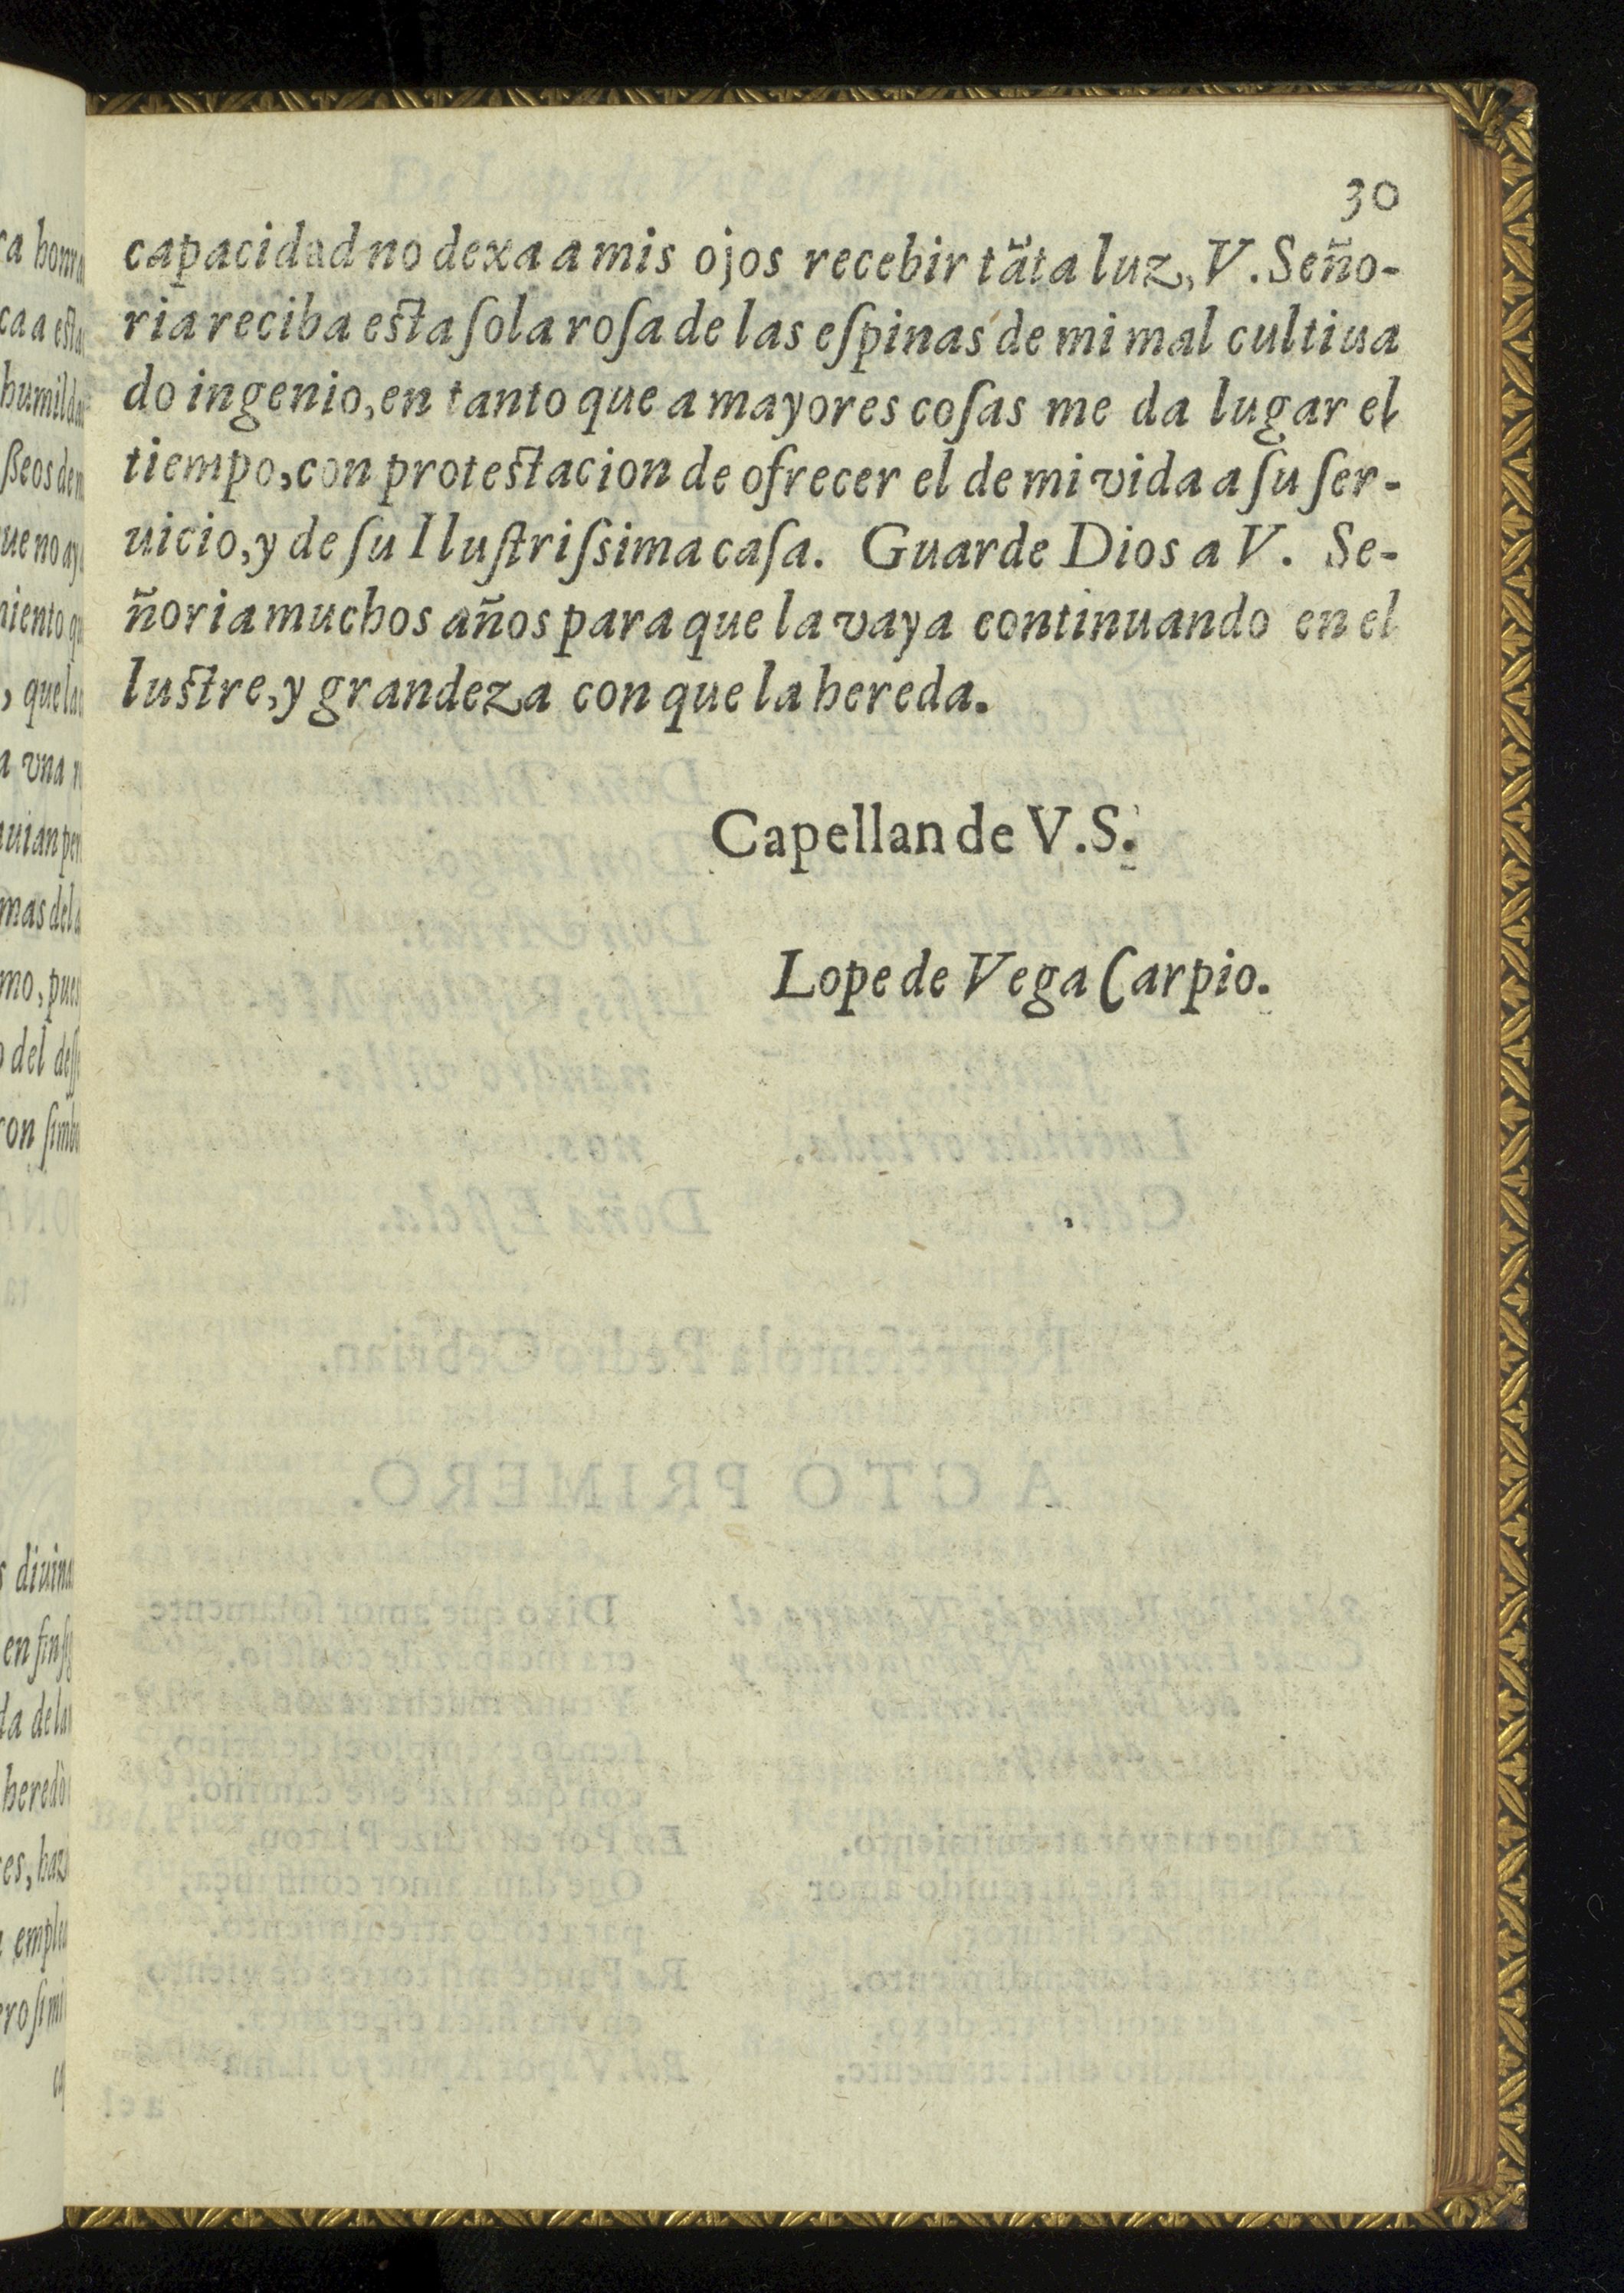 30
capacidad no dexa a mis ojos recebir tãta luz, V. Seño-
ria reciba esta ſola roſa de las eſpinas de mi mal cultiua
do ingenio, en tanto que a mayores coſas me da lugar el
tiempo, con protestacion de ofrecer el de mi vida a ſu ſer-
uicio, y de ſu Iluſtriſsima caſa. Guarde Dios a V. Se-
ñoria muchos años para que la vaya continuando en el
lustre, y grandeza con que la hereda.
Capellan de V.S.
Lope de Vega Carpio.